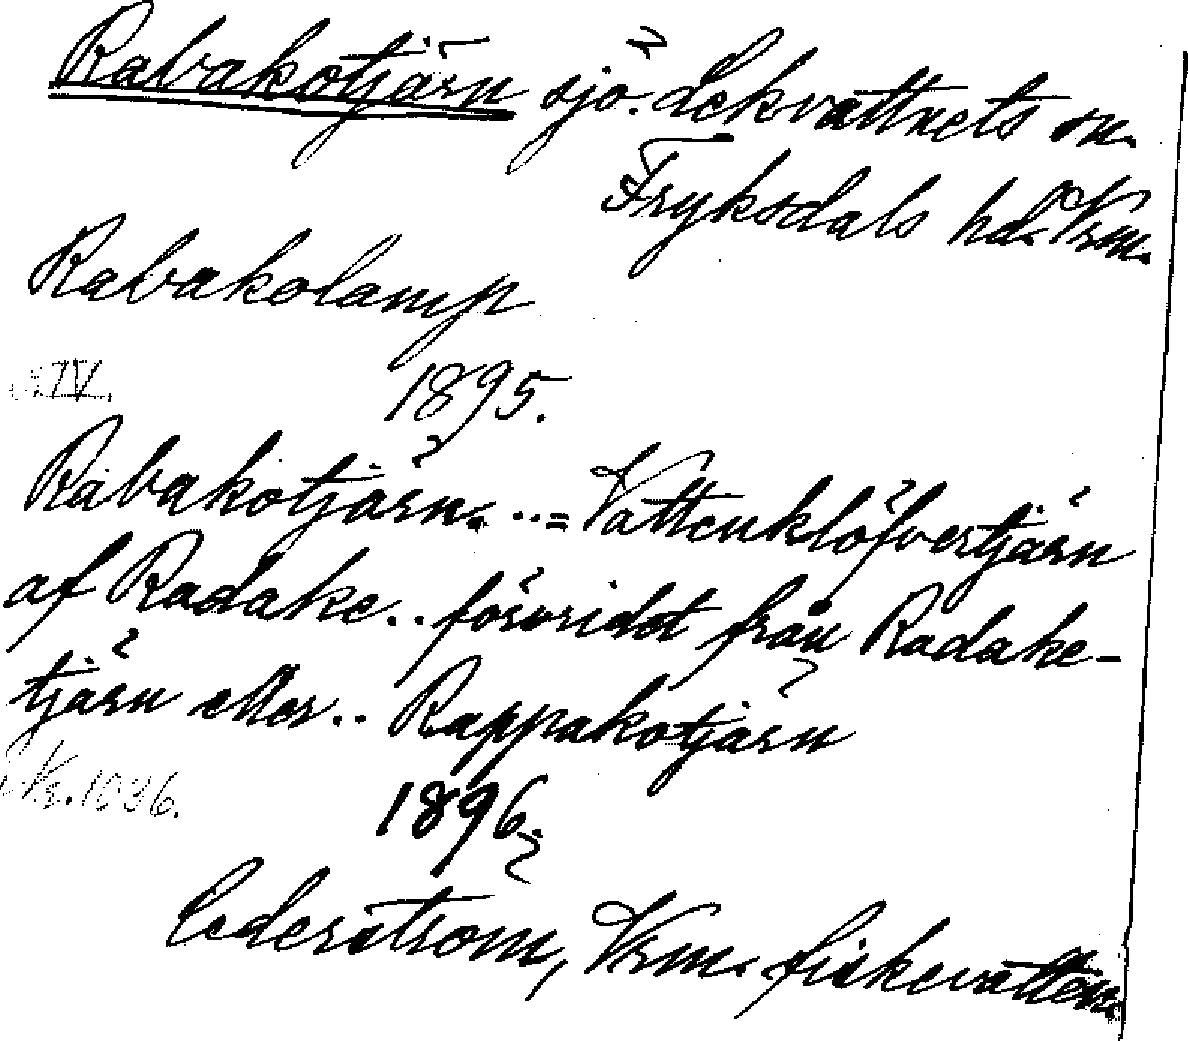 Rabakotjärn sjö. Lekvattnets sn.
Fryksdals hd. Vrm.
Rabakolamp
IV. 1895.
Rabakotjärn. ..= Vattenklöfvertjärn
af Radake.. förvridet från Radake-
tjärn eller.. Rappakotjärn
1896.
Cederström, Vrm. fiskevatten.